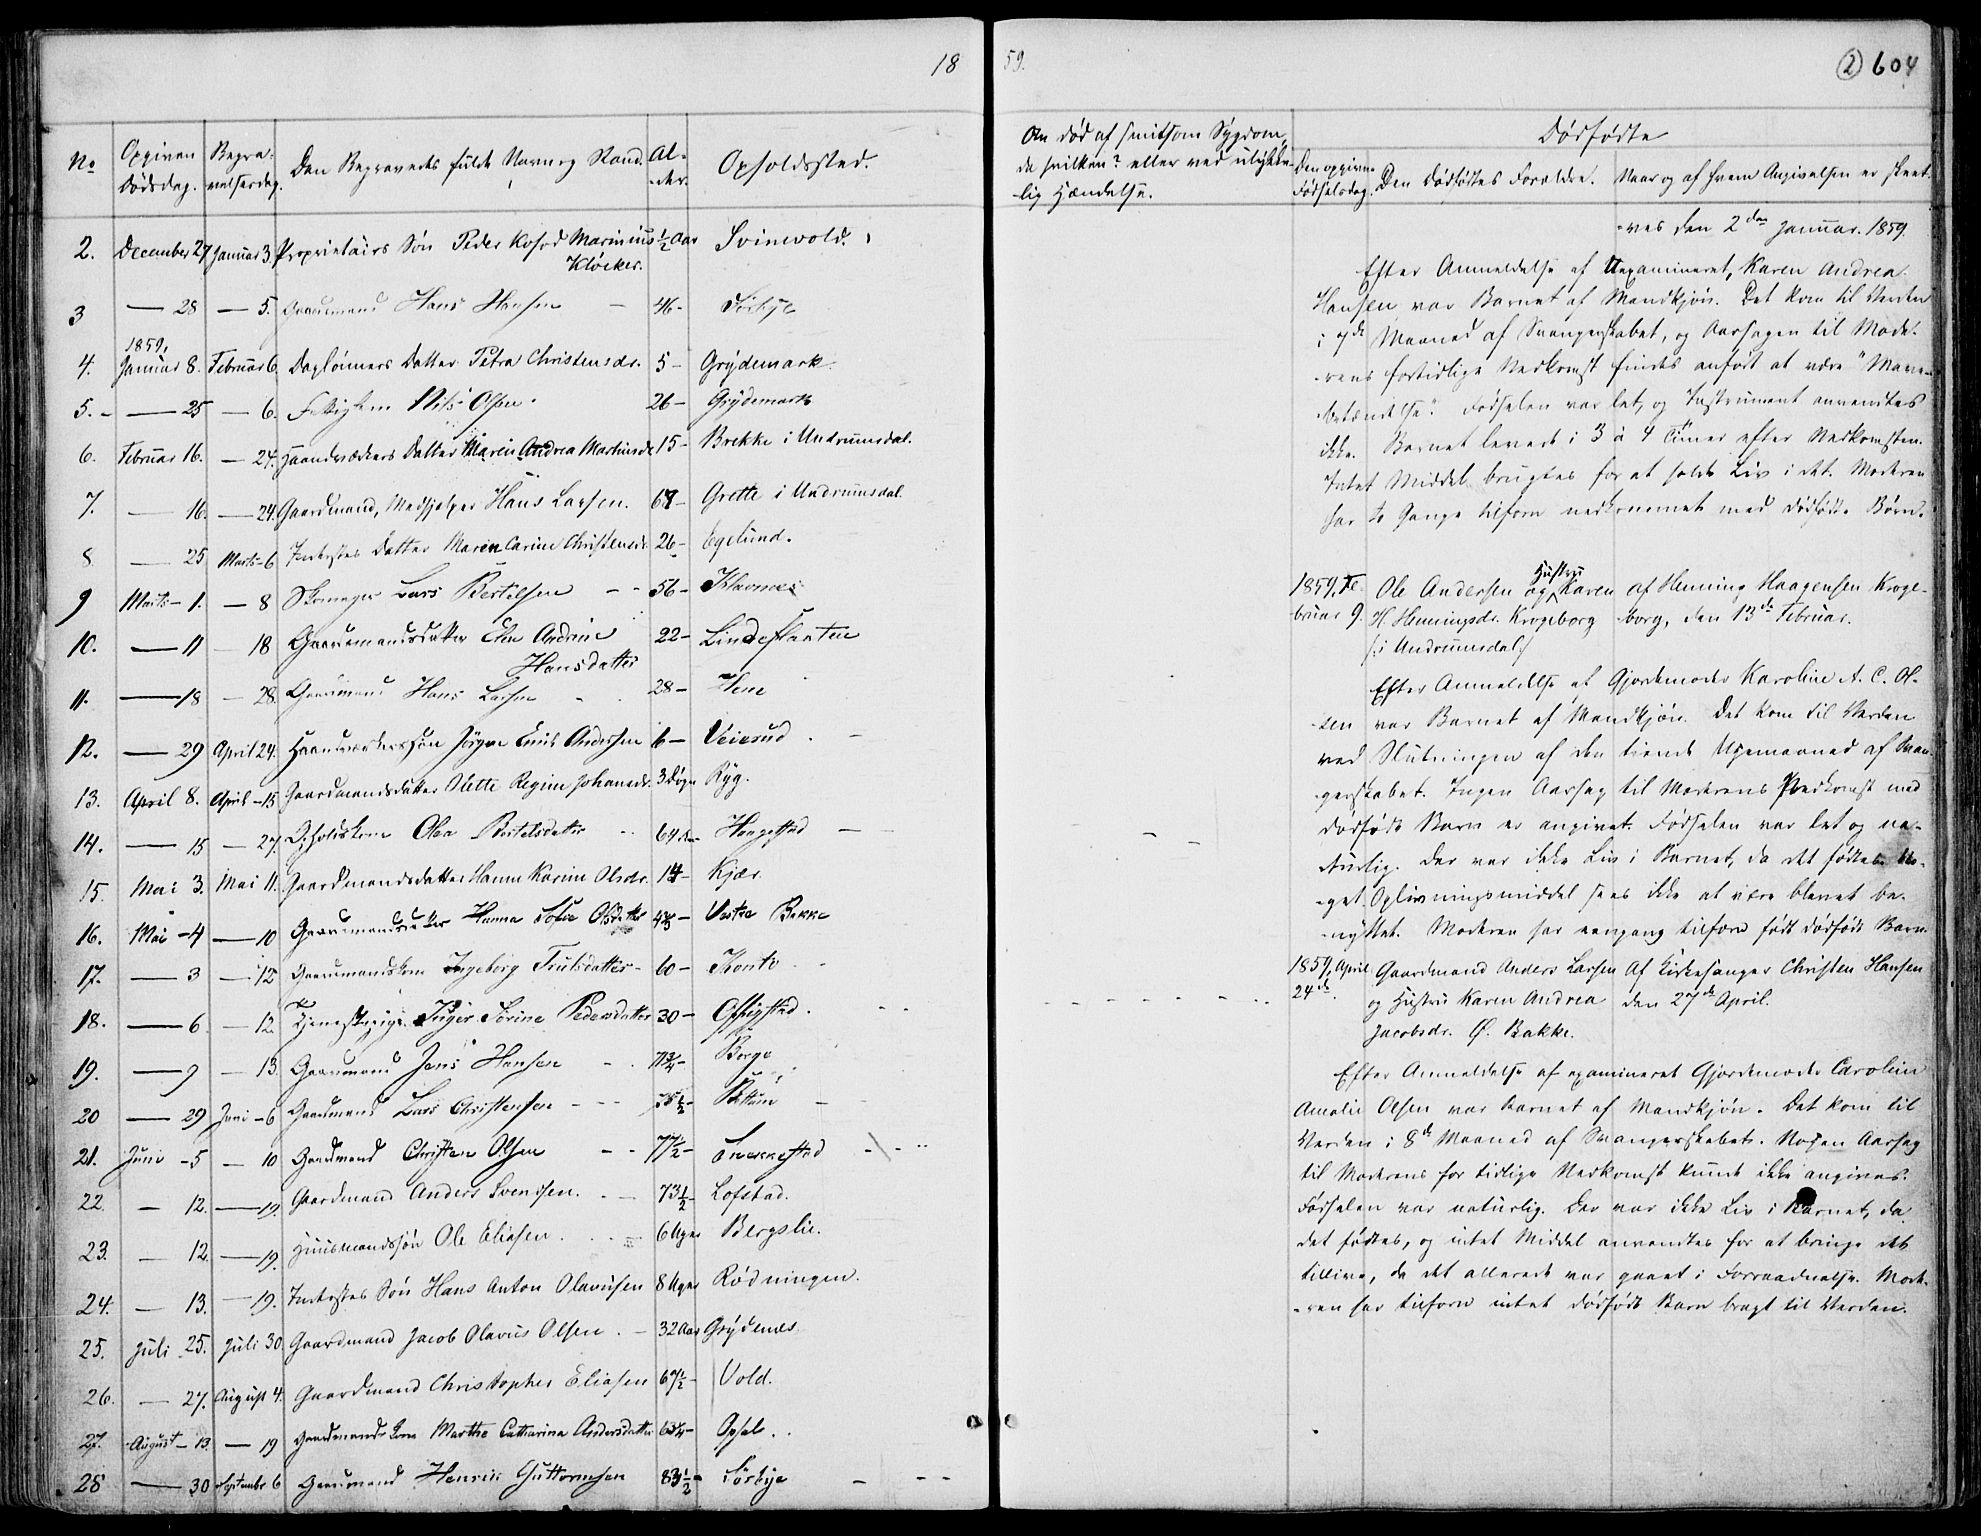 18
59.
② 604
No
Opgiven Dødsdag.
Begravelsesdag.
Den Begravedes fulde Navn og Stand.
Alder.
Opholdssted.
Om død af smitsom Sygdom,
da hvilken? eller ved ulykke-
lig Hændelse.
Dødfødte
Den opgivne Fødselsdag.
Den Dødfødtes Forældre.
Naar og af hvem Angivelsen er skeet.
2. December 27 Januar 3. Proprietairs Søn Peder Kofod Marinius 1/2 Aar Svinevold.
Kløcker.
3 — 28 — 5. Gaardmand Hans Hansen 46 - Sörbye
1859,
4. Januar 8. Februar 6. Daglönners Datter Petra Christensdr. 5 - Grydemark.
5. — 25 — 6. Nils Olsen. 26 - Grydemark
6. Februar 16. — 24. Haandværkers Datter Maren Andrea Martinsdr. 15 - Brekke i Undrumsdal.
7. — 16. — 24. Gaardmand, Medhjelper Hans Larsen. 67 - Grette i Undrumsdal.
8 — 25 Marts - 6 Inderstes Datter Maren Carine Christensdr. 26 - Egelund.
9 Marts - 1. — 8 Skomager Lars Bertelsen 56 - Klavenes
10. — 11 — 18 Gaardmandsdatter Andrine 22 - Lindeflaaten
Hansdatter
11. — 18 — 28. Gaardmand Hans Larsen 28 - Hem
12. — 29 April 24. Haandværkerssøn Jörgen Emil Andersen 6 — Veierud
13. April 8. April - 15 Gaardmandsdatter Olette Regine Johansdr. 3 Døgn Ryg.
14. — 15 — 27. Olea Bertelsdatter 64 Haugestad
15. Mai 3. Mai 11. Gaardmandsdatter Hanna Karine Olsdr. 14 - Kjær.
16. Mai - 4 — 10 Gaardmandsdatter Hanna Sofie Olsdatter Vestre Bakke
17. — 3 — 12 Gaardmandskone Ingeborg Trulsdatter - 60 -
18. — 6 — 12. Tjenestepige Inger Sørine Pedersdatter 30 -
19. — 9 — 13. Gaardmand Jens Hansen Borge
20 — 29 Juni - 6 Gaardmand Lars Christensen
21. Juni - 5 — 10 Gaardmand Christen Olsen 77 1/2 - Snekkestad
22. — 12. — 19. Gaardmand Anders Svendsen. 73 1/2 - Lofstad.
23. — 12 — 19. Huusmandssøn Ole Eliasen. 6 Uger Bergslie.
24. — 13. — 19. Inderstes Søn Hans Anton Olavesen 8 Uger Rødningen.
25. Juli 25. Juli 30. Gaardmand Jacob Olavus Olsen. 32 Aar Grydenes
26. — 27. August 4. Gaardmand Christopher Eliasen Vold.
27. August - 13 — 19 Gaardmandskone Marthe Catharina Andersdatter Opsal.
28 — 30 September 6 Gaardmand Henrik Guttormsen 83 1/2 Sörbye
-ves den 2den Januar. 1859.
Efter Anmeldelse af Uexamineret, Karen Andrea
Hansen, var Barnet af Mandkjøn. Det kom til Verden
i 7de Maaned af Svangerskabet, og Aarsagen til Mode-
-rens fortidlige Nedkomst findes anført at være "Mave-
betændelse". Fødselen var let, og Instrument anvendtes
ikke. Barnet levede i 3 à 4 Timer efter Nedkomsten.
Intet Middel brugtes for at holde Liv i det. Moderen
har to Gange tilforn nedkommet med dødfødte Børn.
1859, Fe-
bruar 9.
Ole Andersen og Hustru Karen
H. Henningsdr. Krogeborg
/: i Undrumsdal :/
af Henning Haagensen Kroge-
borg, den 13de Februar.
Efter Anmeldelse af Gjordemoder Karoline A. C. Ol-
sen var Barnet af Mandkjøn. Det kom til Verden
ved Slutningen af den tiende Ugemaaned af Svan-
gerskabet. Ingen Aarsag til Moderens Nedkomst med
dødfødt Barn er angivet. Fødselen var let og na-
turlig. Der var ikke Liv i Barnet, da det fødtes. No-
get Oplivningsmiddel sees ikke at være blevet be-
nyttet. Moderen har eengang tilforn født dødfødt Barn
1859, April
24de.
Gaardmand Anders Larsen
og Hustru Karen Andrea
Jacobsdr. Ø. Bakke.
Af Kirkesanger Christen Hansen
den 27de April.
Efter Anmeldelse af examineret Gjordemoder Caroline
Amalie Olsen var Barnet af Mandkjøn. Det kom til
Verden i 8de Maaned af Svangerskabet. Nogen Aarsag
til Moderens for tidlige Nedkomst kunde ikke angives.
Fødselen var naturlig. Der var ikke Liv i Barnet, da
det fødtes, og intet Middel anvendtes for at bringe det
tillive, da det allerede var gaaet i Forraadnelse. Mode-
-ren har tilforn intet dødfødt Barn bragt til Verden.